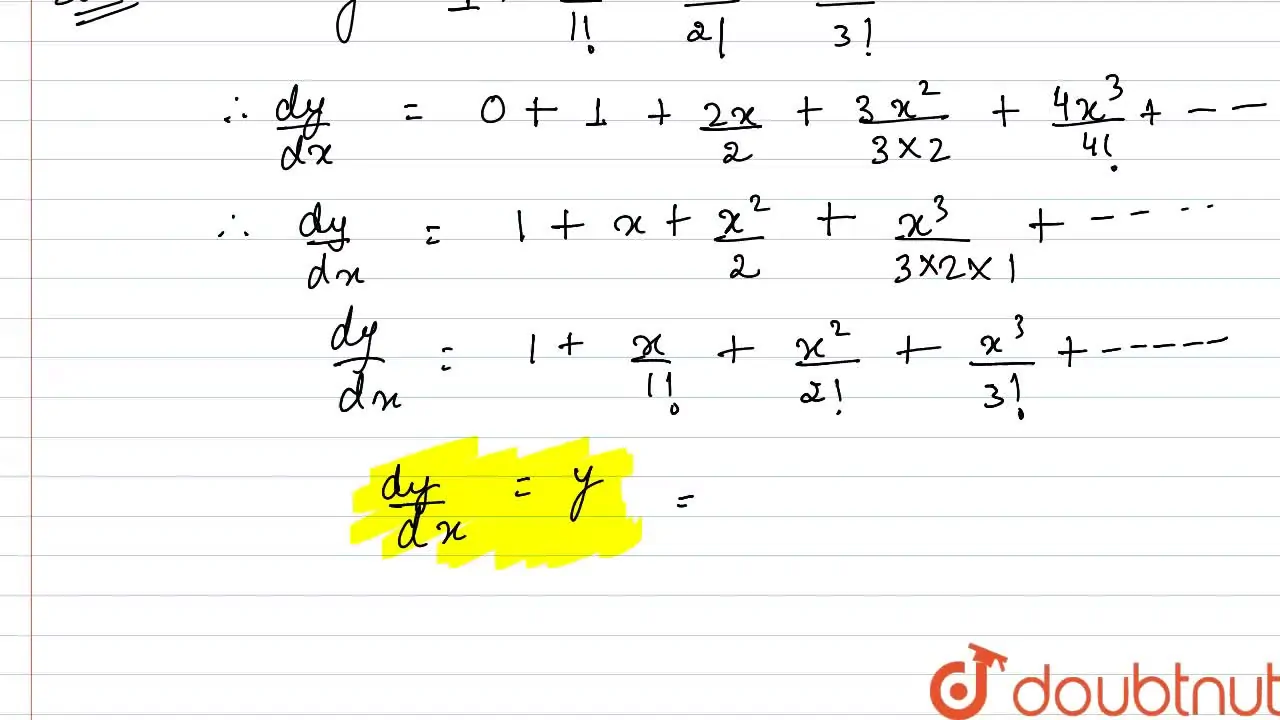 y 1 + 1! 2! 3!
∴ dy/dx = 0 + 1 + 2x/2 + 3x²/3×2 + 4x³/4! + - -
∴ dy/dx = 1 + x + x²/2 + x³/3×2×1 + - - - -
dy/dx = 1 + x/1! + x²/2! + x³/3! + - - - - -
dy/dx = y =
doubtnut